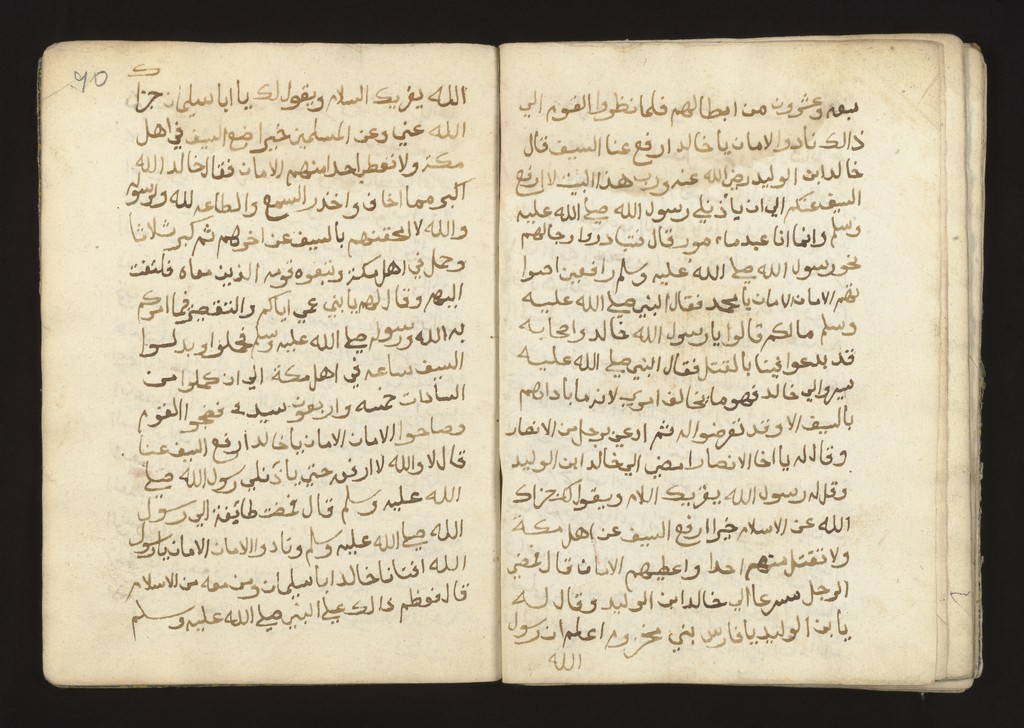 سبعه وعشرون من ابطالهم فلما نظروا القوم الي
ذالك نادوا الامان يا خالد ارفع عنا السيف قال
خالد ابن الوليد رضي الله عنه ورب هذا البيت لا ارفع
السيف عنكم الي ان ياذن لي رسول الله صلي الله عليه
وسلم وانما انا عبد مامور قال فتبادروا رجالهم
نحو رسول الله صلي الله عليه وسلم رافعين اصوا
تهم الامان الامان يا محمد فقال النبي صلي الله عليه
وسلم مالكم قالوا يا رسول الله خالد واصحابه
قد بدعوا فينا بالقتل فقال النبي صلي الله عليه
سيروا الي خالد فهو ما يخالف امري لانه ما باداهم
بالسيف الا وقد تعرضوا له ثم ادعي برجل من الانصار
وقال له يا اخا الانصار امضي الي خالد ابن الوليد
وقل له رسول الله يقريك السلام ويقول لك جزاك
الله عن الاسلام خيرا ارفع السيف عن اهل مكة
ولا تقتل منهم احدا واعطيهم الامان قال فمضي
الرجل مسرعا الي خالد ابن الوليد وقال له
يا بن الوليد يا فارس بني مخزوم اعلم ان رسول
الله
٩٥
الله يقريك السلام ويقول لك يا ابا سليمان جزا
الله عني وعن المسلمين خيرا ضع السيف في اهل
مكة ولا تعطي احدا منهم الامان فقال خالد الله
اكبر مما اخاف واحذر السمع والطاعه لله ولرسوله
والله لالحقنهم بالسيف عن اخرهم ثم كبر ثلاثا
وحمل في اهل مكة وتبعوه قومه الذين معاه فلتفت
اليهم وقال لهم يا بني عمي اياكم والتقصير فيما امركم
به الله ورسوله صلي الله عليه وسلم فحملوا وبدلوا
السيف ساعه في اهل مكة الي ان كملوا من
السادات خمسه واربعون سيد فضجوا القوم
وصاحوا الامان الامان يا خالد ارفع السيف عنا
قال لا والله لا ارفع حتي ياذن لي رسول الله صلي
الله عليه وسلم قال فمضت طائفة الي رسول
الله صلي الله عليه وسلم ونادوا الامان الامان يا رسول
الله افنانا خالد ابا سليمان ومن معه من الاسلام
قال فعظم ذالك علي النبي صلي الله عليه وسلم